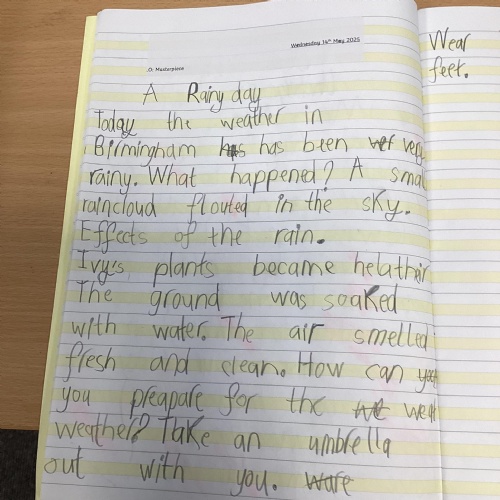 Wednesday 14th May 2025
.O. Masterpiece
A Rainy day
Today the weather in
Birmingham has has been ver very
rainy. What happened? A smal
raincloud flouted in the sky.
Effects of the rain.
Ivy's plants became helathir
The ground was soaked
with water. The air smelled
fresh and clean. How can you
you preapare for the wet weat
weather? Take an umbrella
out with you. Ware
Wear
feet.